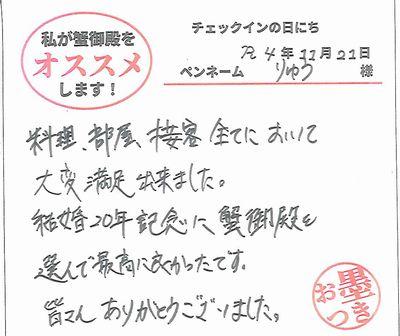 私が蟹御殿を
オススメ
します!
チェックインの日にち
R4年11月21日
ペンネーム りゅう 様
料理、部屋、接客全てにおいて
大変満足出来ました。
結婚20年記念に蟹御殿を
選んで最高に良かったです。
皆さんありがとうございました。
墨つき
お